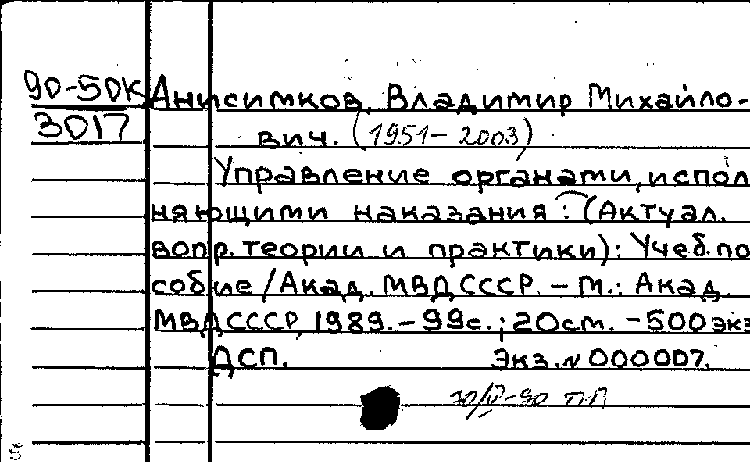 90-50К Анисимков, Владимир Михайло-
3017 вич. (1951-2003)
Управление органами, испол
няющими наказания: (Актуал.
вопр. теории и практики): Учеб. по
собие / Акад. МВД СССР. - М.: Акад.
МВД СССР, 1989. - 99с.; 20см. - 500 экз
ДСП. Экз. № 000007.